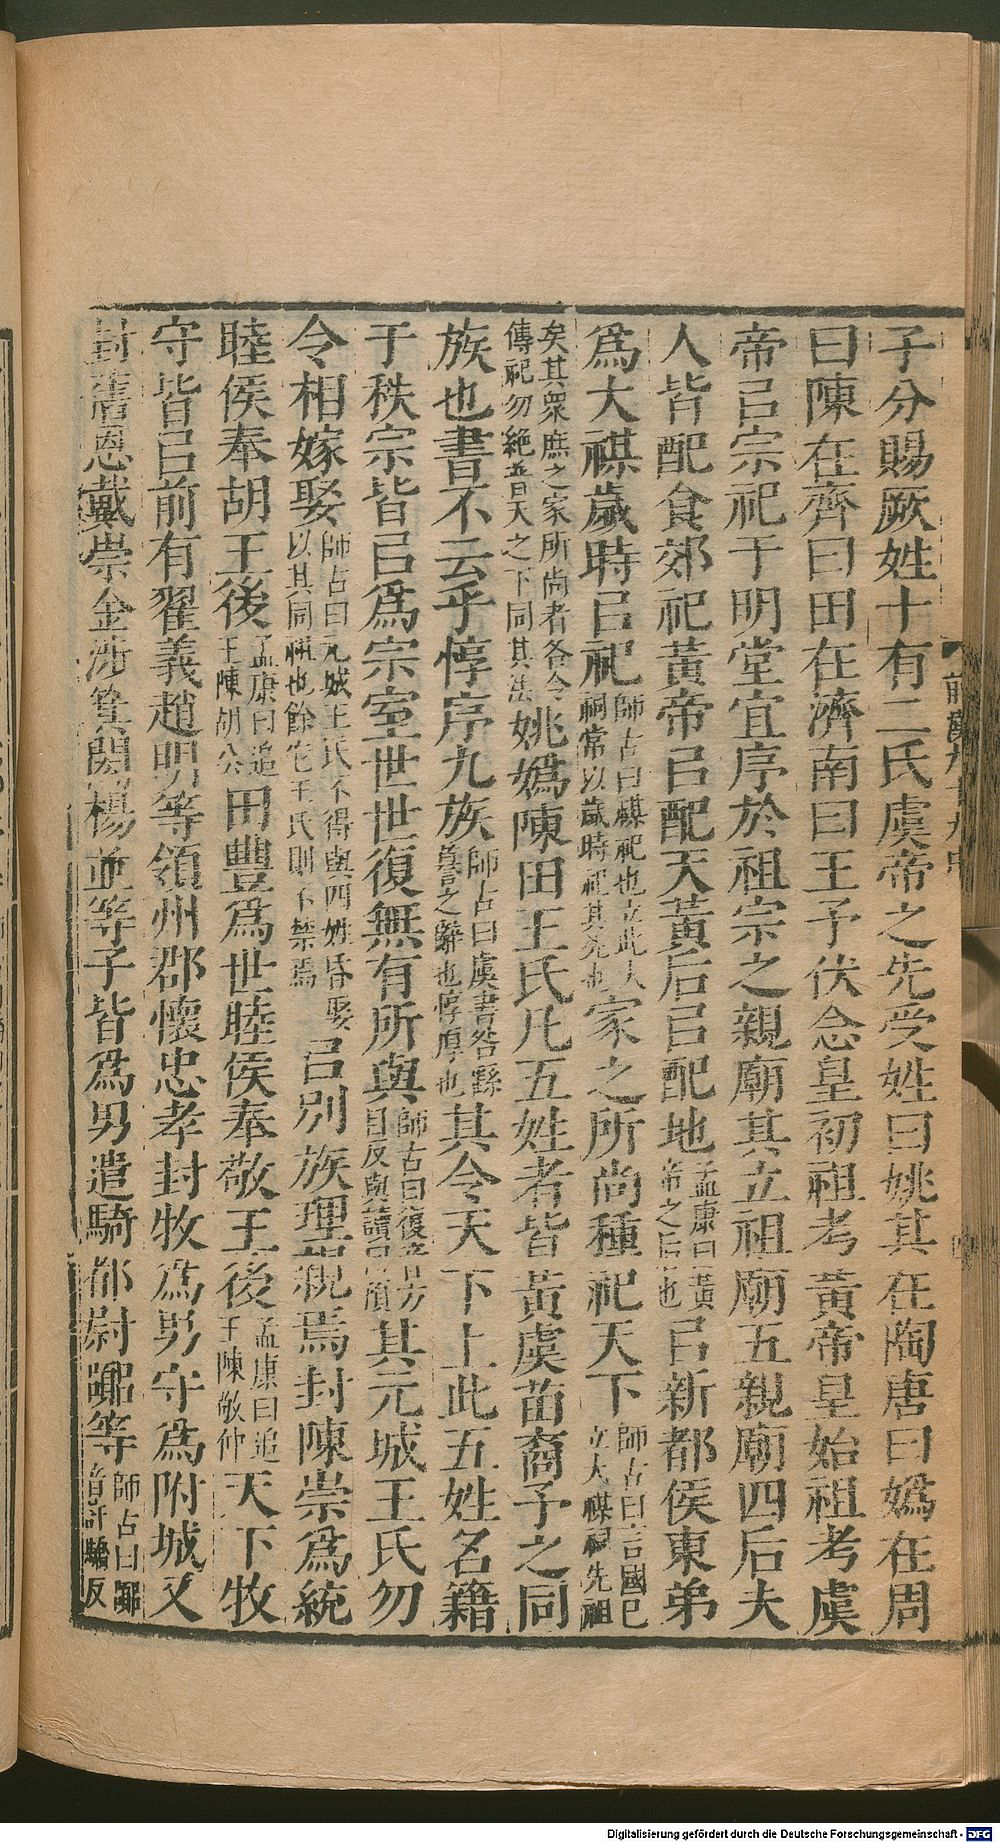 子分賜厥姓十有二氏虞帝之先受姓曰姚其在陶唐曰嬀在周
曰陳在齊曰田在濟南曰王予伏念皇初祖考黃帝皇始祖考虞
帝㠯宗祀于明堂宜序於祖宗之親廟其立祖廟五親廟四后夫
人皆配食郊祀黃帝㠯配天黃后㠯配地孟康曰黃帝之后也㠯新都侯東弟
爲大禖歲時㠯祀師古曰禖祀也立此大祠常以歲時祀其先也家之所尚種祀天下師古曰言國已立大禖祠先祖
矣其衆庶之家所尚者各令傳祀勿絶普天之下同其法姚嬀陳田王氏凡五姓者皆黃虞苗裔予之同
族也書不云乎惇序九族師古曰虞書咎繇謩之辭也惇厚也其令天下上此五姓名籍
于秩宗皆㠯爲宗室世世復無有所與師古曰復音方目反與讀曰預其元城王氏勿
令相嫁娶師古曰元城王氏不得與四姓昏娶以其同祖也餘它王氏則不禁焉㠯別族理親焉封陳崇爲統
睦侯奉胡王後孟康曰追王陳胡公田豐爲世睦侯奉敬王後孟康曰追王陳敬仲天下牧
守皆㠯前有翟義趙明等領州郡懷忠孝封牧爲男守爲附城又
封舊恩戴崇金涉箕閎楊並等子皆爲男遣騎都尉嚻等師古曰嚻音許驕反
Digitalisierung gefördert durch die Deutsche Forschungsgemeinschaft - DFG